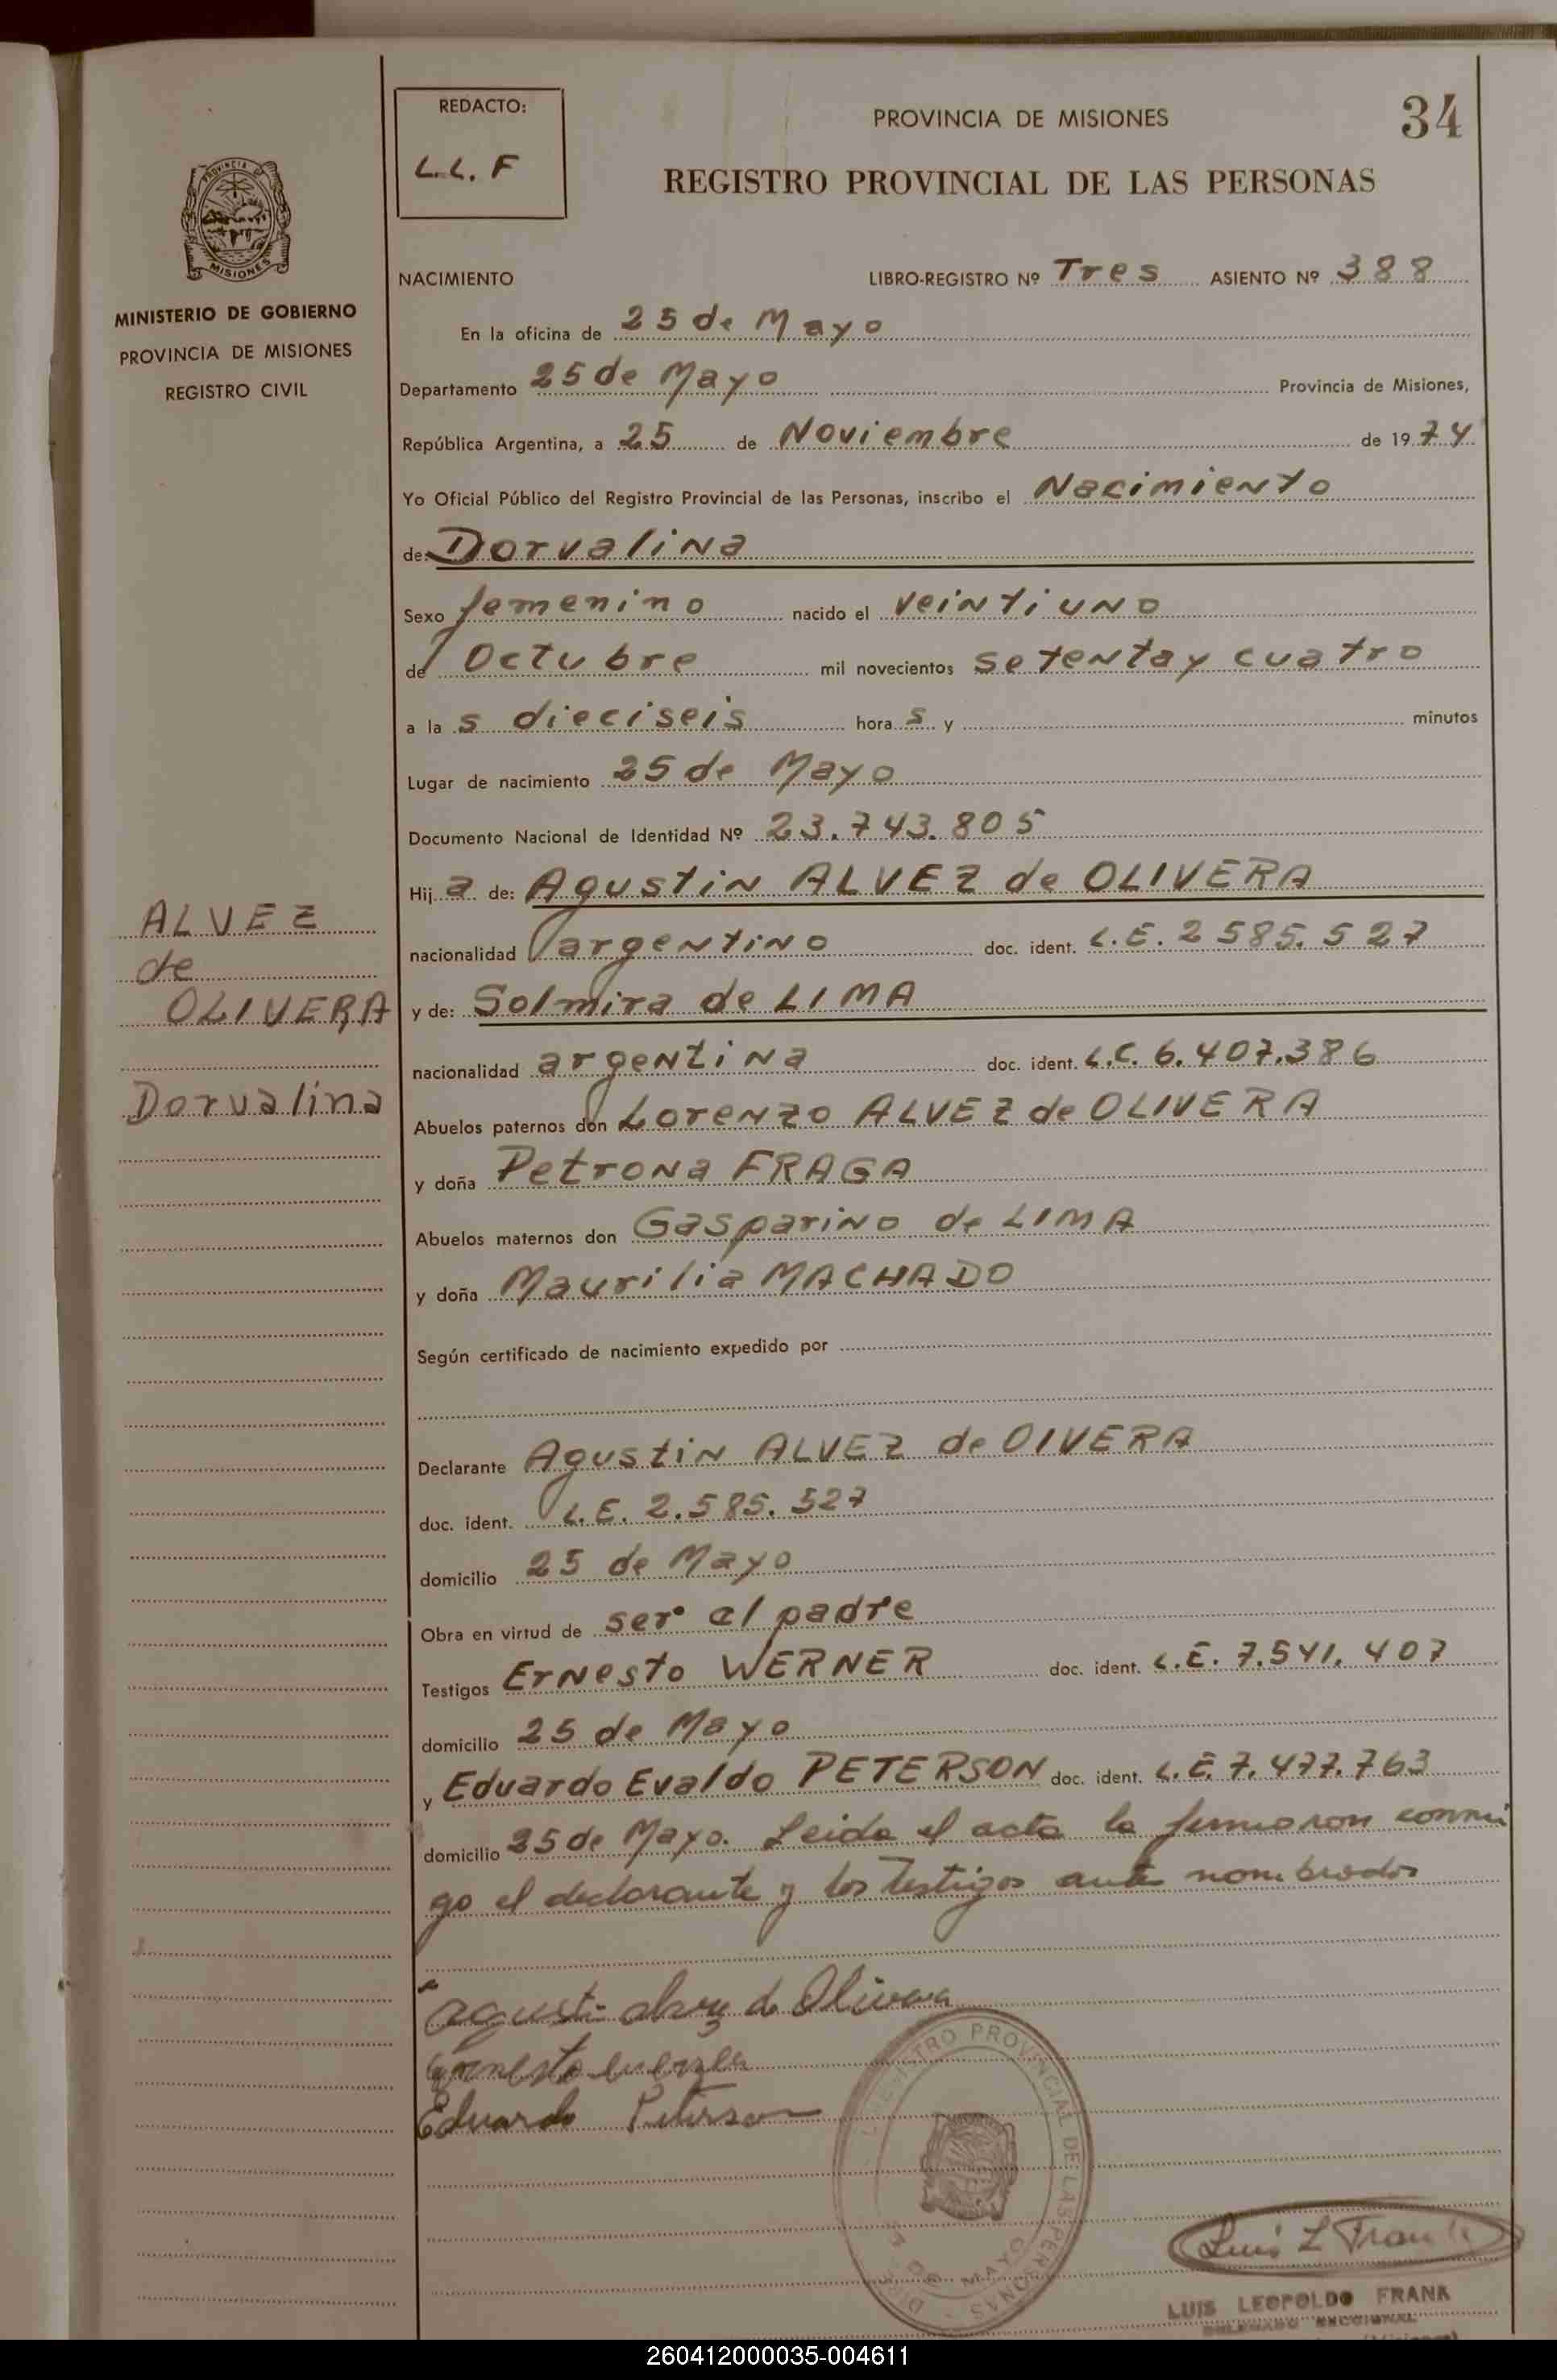 REDACTO:
L.L.F
PROVINCIA DE MISIONES
34
REGISTRO PROVINCIAL DE LAS PERSONAS
PROVINCIA DE
MISIONES
MINISTERIO DE GOBIERNO
PROVINCIA DE MISIONES
REGISTRO CIVIL
NACIMIENTO LIBRO-REGISTRO Nº Tres ASIENTO Nº 388
En la oficina de 25 de Mayo
Departamento 25 de Mayo Provincia de Misiones,
República Argentina, a 25 de Noviembre de 1974
Yo Oficial Público del Registro Provincial de las Personas, inscribo el Nacimiento
de: Dorvalina
Sexo femenino nacido el veintiuno
de Octubre mil novecientos setenta y cuatro
a la s dieciseis hora s y minutos
Lugar de nacimiento 25 de Mayo
Documento Nacional de Identidad Nº 23.743.805
Hij a de: Agustin ALVEZ de OLIVERA
nacionalidad argentino doc. ident. L.E. 2585.527
y de: Solmira de LIMA
nacionalidad argentina doc. ident. L.C. 6.407.386
Abuelos paternos don Lorenzo ALVEZ de OLIVERA
y doña Petrona FRAGA
Abuelos maternos don Gasparino de LIMA
y doña Maurilia MACHADO
Según certificado de nacimiento expedido por
Declarante Agustin ALVEZ de OIVERA
doc. ident. L.E. 2.585.527
domicilio 25 de Mayo
Obra en virtud de ser el padre
Testigos Ernesto WERNER doc. ident. L.E. 7.541.407
domicilio 25 de Mayo
y Eduardo Evaldo PETERSON doc. ident. L.E. 7.477.763
domicilio 25 de Mayo. Leida el acta la firmaron conmi
go el declarante y los Testigos ante nombrados
ALVEZ
de
OLIVERA
Dorvalina
agusti alvez de Olivera
Eduardo Peterson
REGISTRO PROVINCIAL DE LAS PERSONAS
25 DE MAYO
Luis L Frank
LUIS LEOPOLDO FRANK
DELEGADO SECCIONAL
260412000035-004611